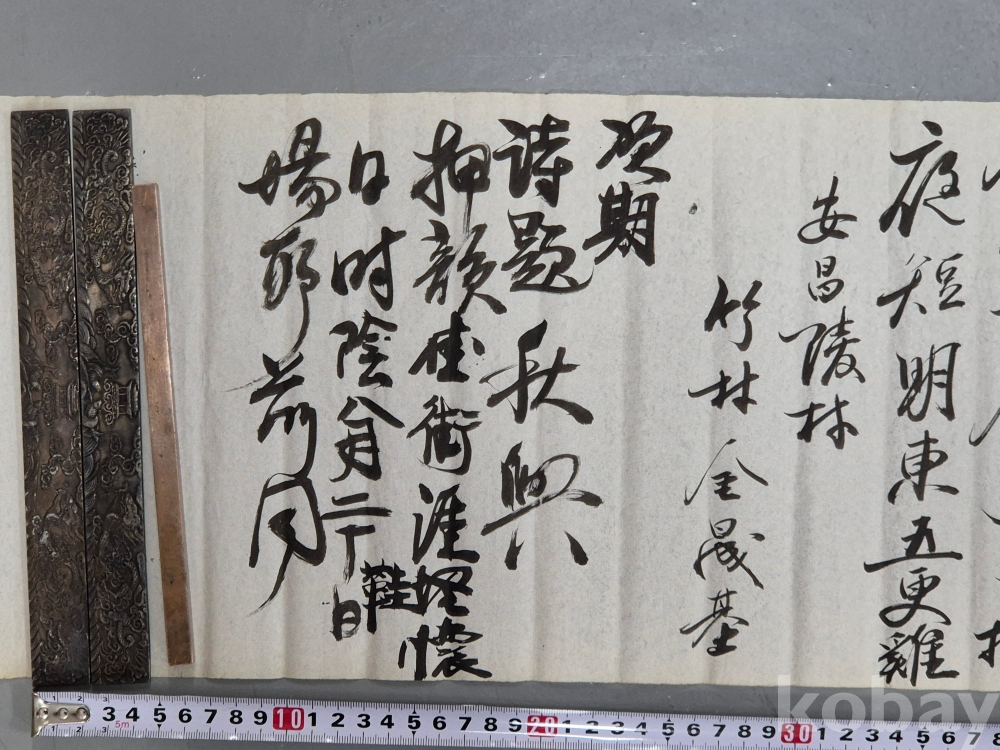 夜短明東五更雞
安昌陵林
竹林 金晟基
次期
詩題 秋興
押韻 佳街涯鞋懷
日時 陰八月二十日
場所 前同
3 4 5 6 7 8 9 10 1 2 3 4 5 6 7 8 9 20 1 2 3 4 5 6 7 8 9 30 1 2 3 4 5 6 7
5m
kobay